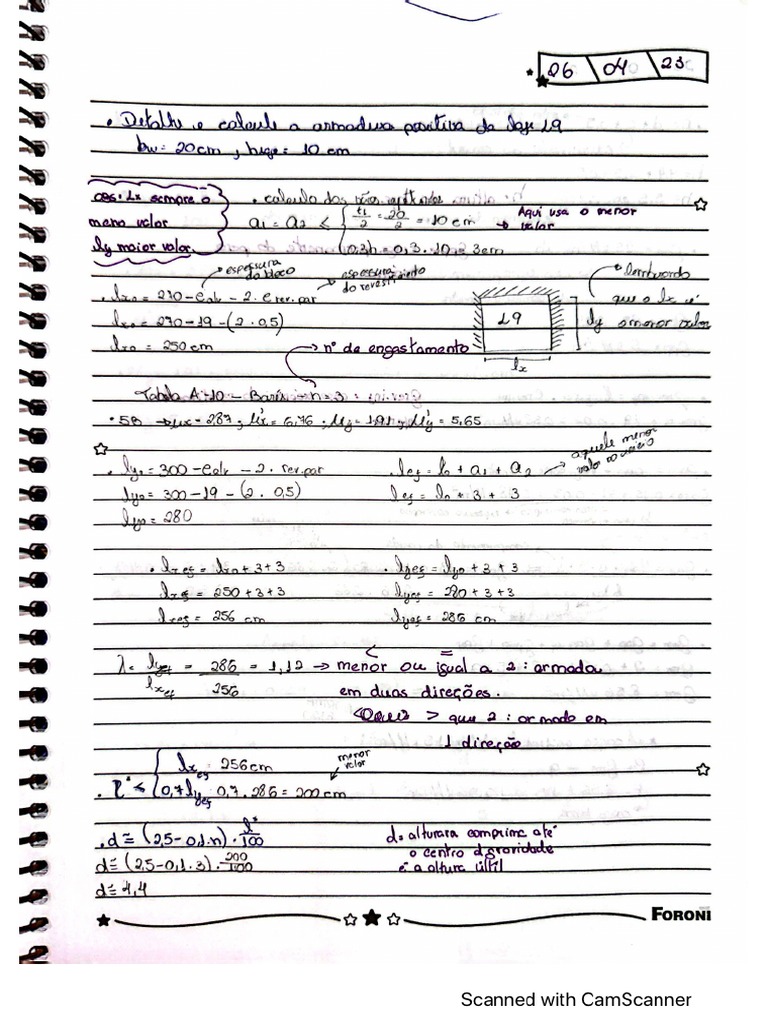 06 04 23
• Detalhe e calcule a armadura positiva da laje L9
bw= 20cm, hlaje= 10 cm
obs: Lx sempre o
meno valor
ly maior valor.
• calculo dos vãos
a1 = a2 ≤ { t1/2 = 20/2 = 10 cm
0,3h = 0,3 . 10 = 3cm
→ Aqui usa o menor
valor
→ espessura
do bloco
→ espessura
do revestimento
• lx0 = 270 - ealv - 2. e rev.par
lx0 = 270 - 19 - (2 . 0,5)
lx0 = 250 cm
L9
lx
ly
lembrando
que o lx é
o menor valor
→ nº de engastamento
Tabela A-10 - Barés - n = 3
• 5B → μx = 2,87 ; μ'x = 6,76 ; μy = 1,91 ; μ'y = 5,65
• ly0 = 300 - ealv - 2 . rev.par
ly0 = 300 - 19 - (2 . 0,5)
ly0 = 280
• lef = l0 + a1 + a2
→ aquele menor
valor no início
lef = l0 + 3 + 3
• lxef = lx0 + 3 + 3
lxef = 250 + 3 + 3
lxef = 256 cm
• lyef = ly0 + 3 + 3
lyef = 280 + 3 + 3
lyef = 286 cm
< =
λ = lyef/lxef = 286/256 = 1,12 → menor ou igual a 2 : armada
em duas direções.
> que 2 : armado em
1 direção
• l* ≤ { lxef = 256 cm
0,7 lyef 0,7 . 286 = 200 cm
menor
valor
• d ≅ (2,5 - 0,1.n) . l*/100
d ≅ (2,5 - 0,1 . 3) . 200/100
d ≅ 4,4
d = alturara comprime até
o centro d gravidade
é a altura últil
FORONI
Scanned with CamScanner